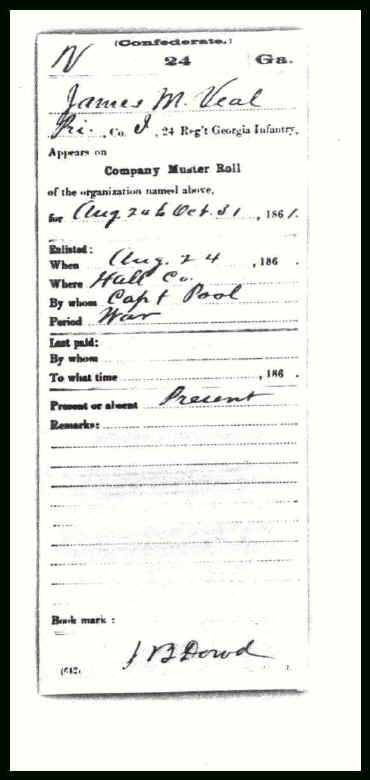 (Confederate.)
V 24 Ga.
James M. Veal
Pri., Co. I, 24 Reg't Georgia Infantry.
Appears on
Company Muster Roll
of the organization named above,
for Aug 24 to Oct. 31, 1861.
Enlisted:
When Aug. 24, 186 .
Where Hall Co.
By whom Capt Pool
Period War
Last paid:
By whom
To what time , 186 .
Present or absent Present
Remarks:
Book mark:
J B Dowd
(642)